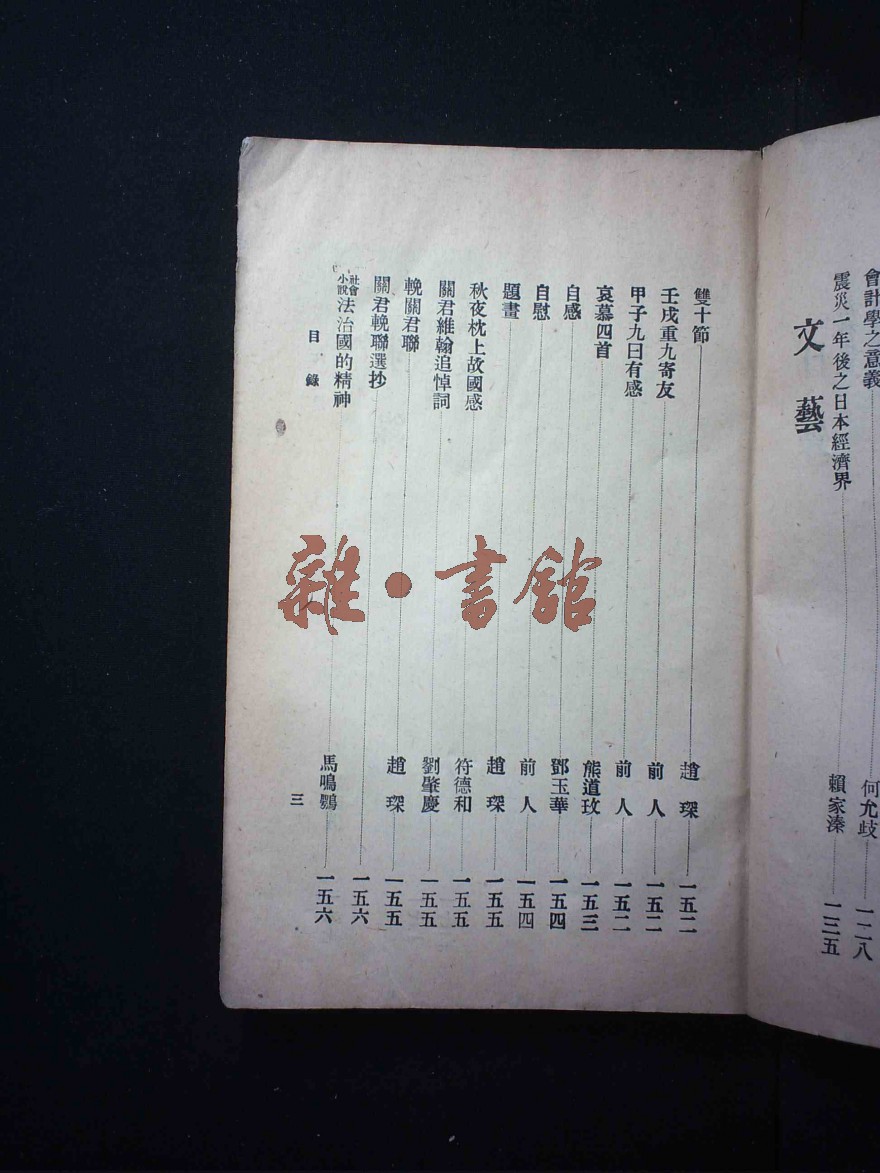 會計學之意義 何允歧 一二八
震災一年後之日本經濟界 賴家溱 一三五
文藝
雙十節 趙琛 一五二
壬戌重九寄友 前人 一五二
甲子九日有感 前人 一五二
哀慕四首 熊道玫 一五三
自感 鄧玉華 一五四
自慰 前人 一五四
題畫 趙琛 一五五
秋夜枕上故國感 符德和 一五五
關君維翰追悼詞 劉肇慶 一五五
輓關君聯 趙琛 一五五
關君輓聯選抄 一五六
社會小說 法治國的精神 馬鳴鸚 一五六
目錄 三
雜·書館